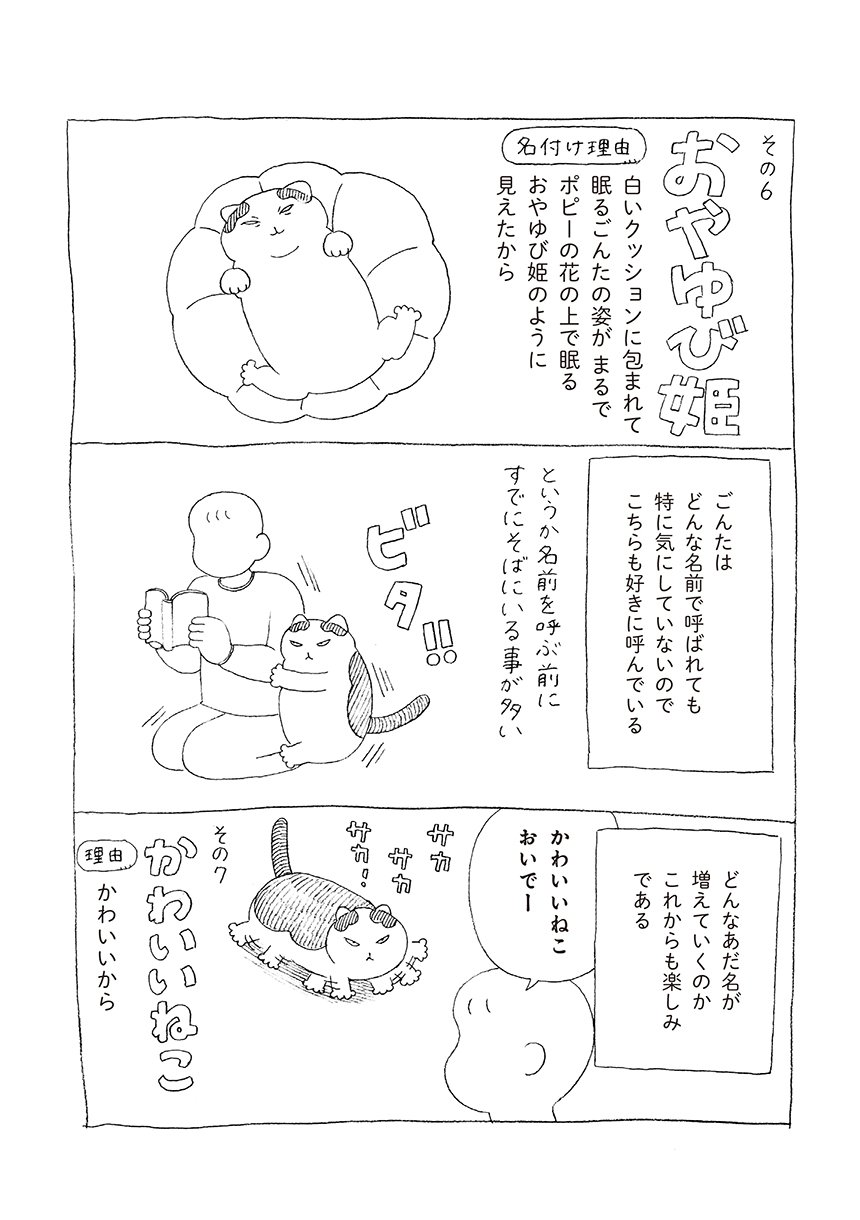 その6
おやゆび姫
名付け理由
白いクッションに包まれて
眠るごんたの姿が まるで
ポピーの花の上で眠る
おやゆび姫のように
見えたから
ごんたは
どんな名前で呼ばれても
特に気にしていないので
こちらも好きに呼んでいる
というか名前を呼ぶ前に
すでにそばにいる事が多い
ビタ!!
どんなあだ名が
増えていくのか
これからも楽しみ
である
かわいいねこ
おいでー
サカ
サカ
サカ・
その7
かわいいねこ
理由
かわいいから